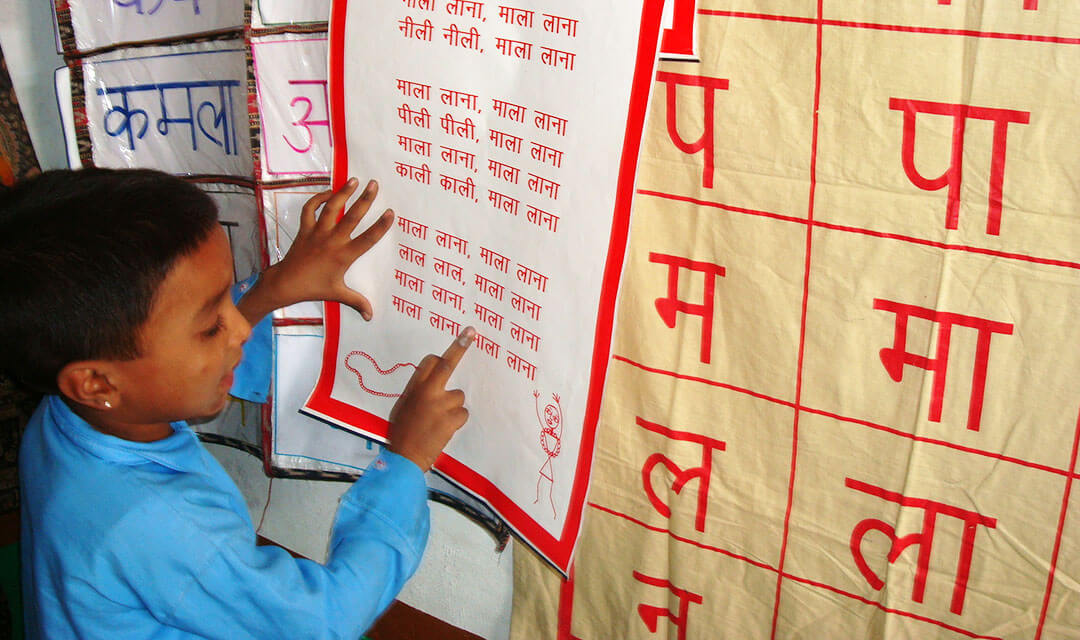 कमला
अ
माला लाना, माला लाना
नीली नीली, माला लाना
माला लाना, माला लाना
पीली पीली, माला लाना
माला लाना, माला लाना
काली काली, माला लाना
माला लाना, माला लाना
लाल लाल, माला लाना
माला लाना, माला लाना
माला लाना, माला लाना
प पा
म मा
ल ला
न